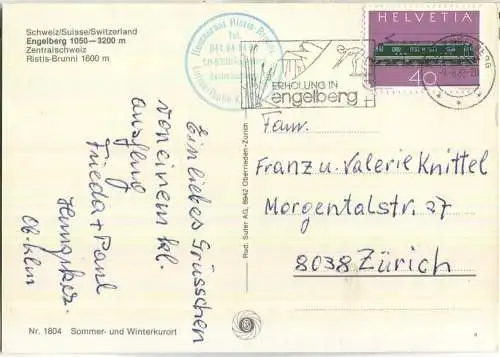 Schweiz/Suisse/Switzerland
Engelberg 1050—3200 m
Zentralschweiz
Ristis-Brunni 1600 m
Restaurant Ristis-Brunni
Tel.
ERHOLUNG IN
engelberg
HELVETIA
40
Ein liebes Grüsschen
von einem kl.
Ausflug
Frieda + Paul
Fam.
Franz u. Valerie Knittel
Morgentalstr. 27
8038 Zürich
Rud. Suter AG, 8942 Oberrieden-Zürich
Nr. 1804 Sommer- und Winterkurort